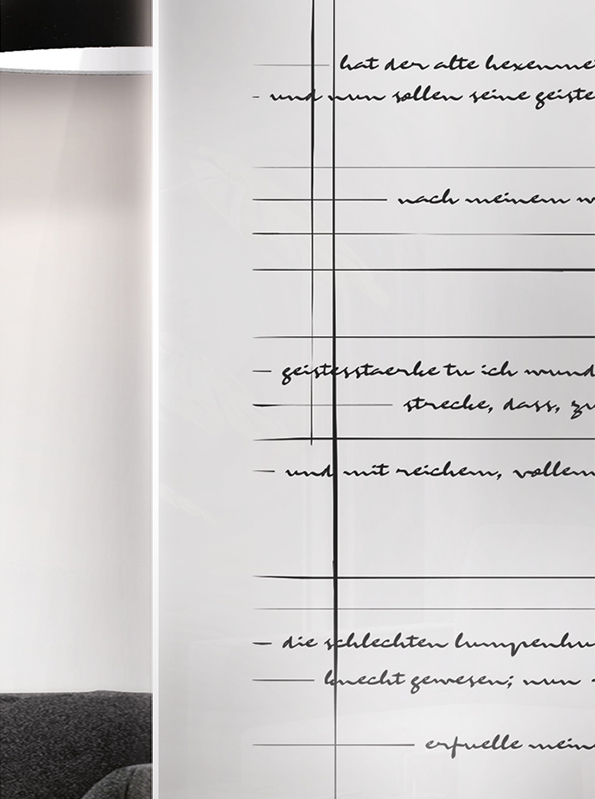 hat der alte hexenme
und nun sollen seine geiste
nach meinem w
geistesstaerke tu ich wund
strecke, dass, zu
und mit reichem, vollem
die schlechten lumpenhu
knecht gewesen; nun
erfuelle mein